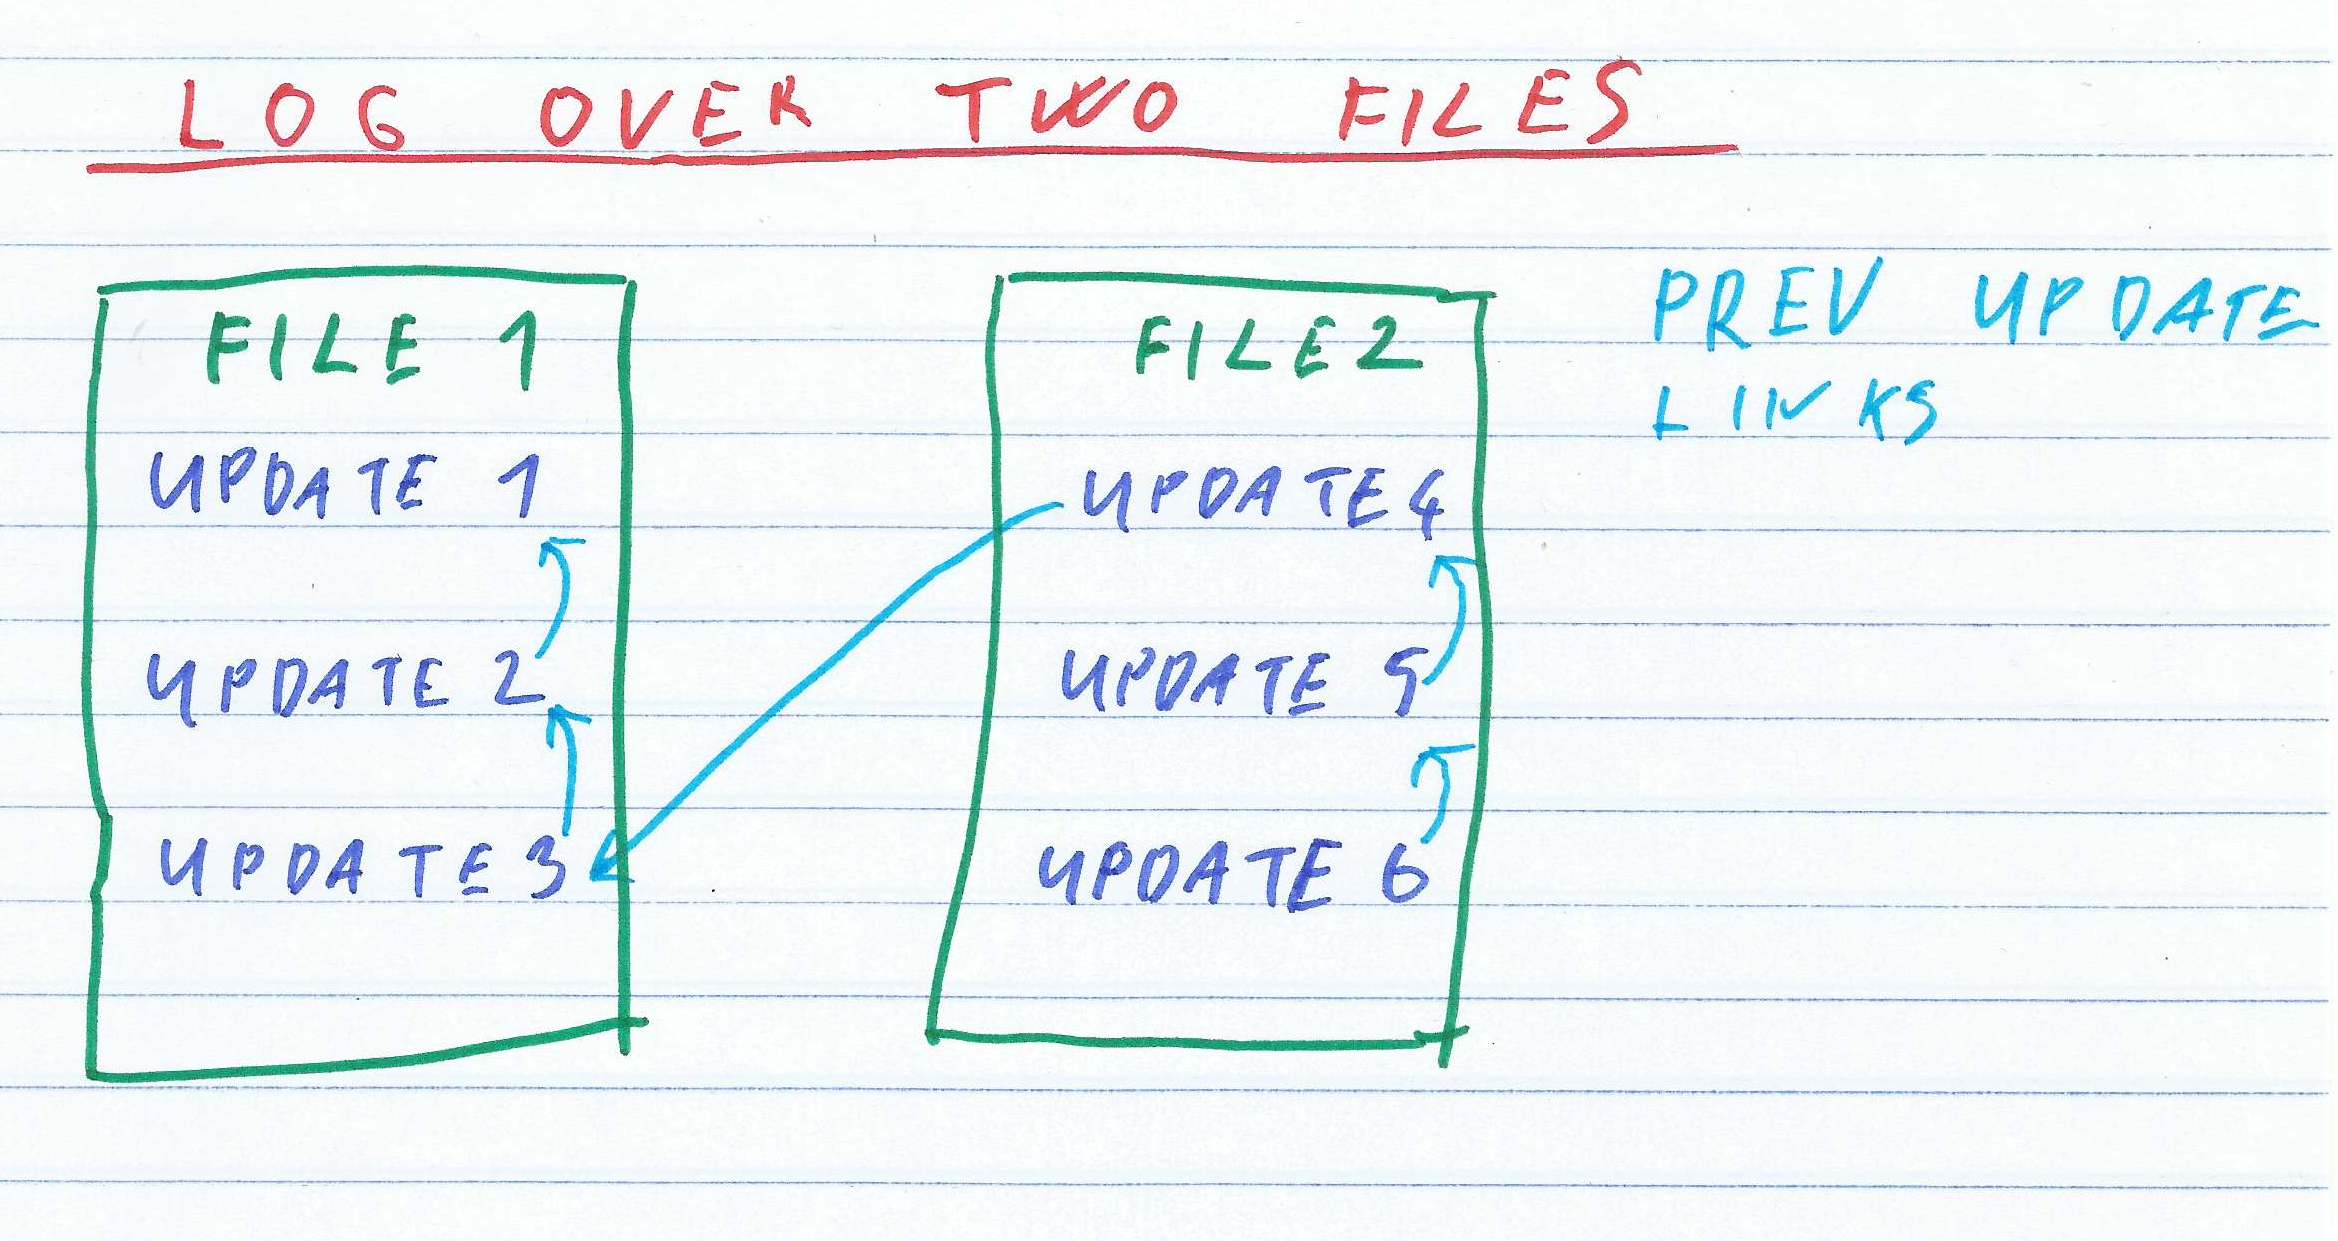 LOG OVER TWO FILES
FILE 1
UPDATE 1
UPDATE 2
UPDATE 3
FILE 2
UPDATE 4
UPDATE 5
UPDATE 6
PREV UPDATE
LINKS